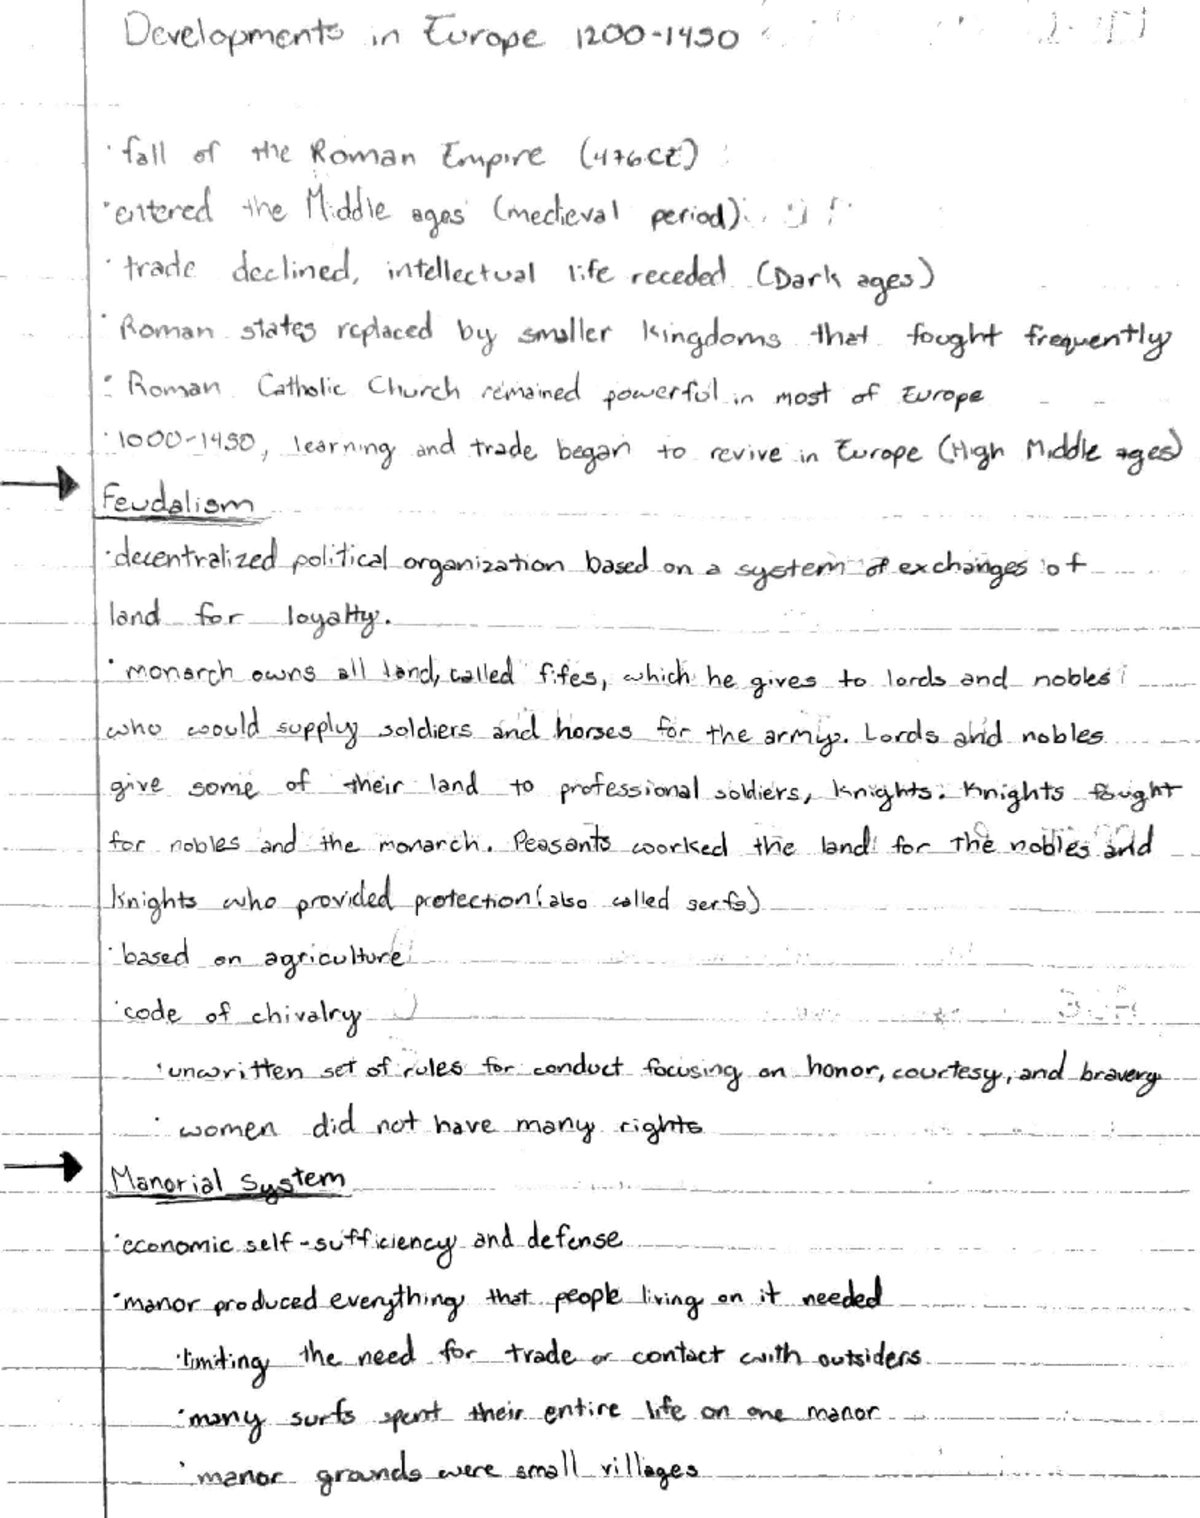 Developments in Europe 1200-1450
· fall of the Roman Empire (476CE)
· entered the Middle ages (medieval period)
· trade declined, intellectual life receded (Dark ages)
· Roman states replaced by smaller kingdoms that fought frequently
· Roman Catholic Church remained powerful in most of Europe
· 1000-1450, learning and trade began to revive in Europe (High Middle ages)
Feudalism
· decentralized political organization based on a system of exchanges of
land for loyalty.
· monarch owns all land, called fifes, which he gives to lords and nobles
who would supply soldiers and horses for the army. Lords and nobles
give some of their land to professional soldiers, knights. Knights fought
for nobles and the monarch. Peasants worked the land for the nobles and
knights who provided protection (also called serfs)
· based on agriculture
· code of chivalry
· unwritten set of rules for conduct focusing on honor, courtesy, and bravery
· women did not have many rights
Manorial System
· economic self-sufficiency and defense
· manor produced everything that people living on it needed
· limiting the need for trade or contact with outsiders
· many surfs spent their entire life on one manor
· manor grounds were small villages